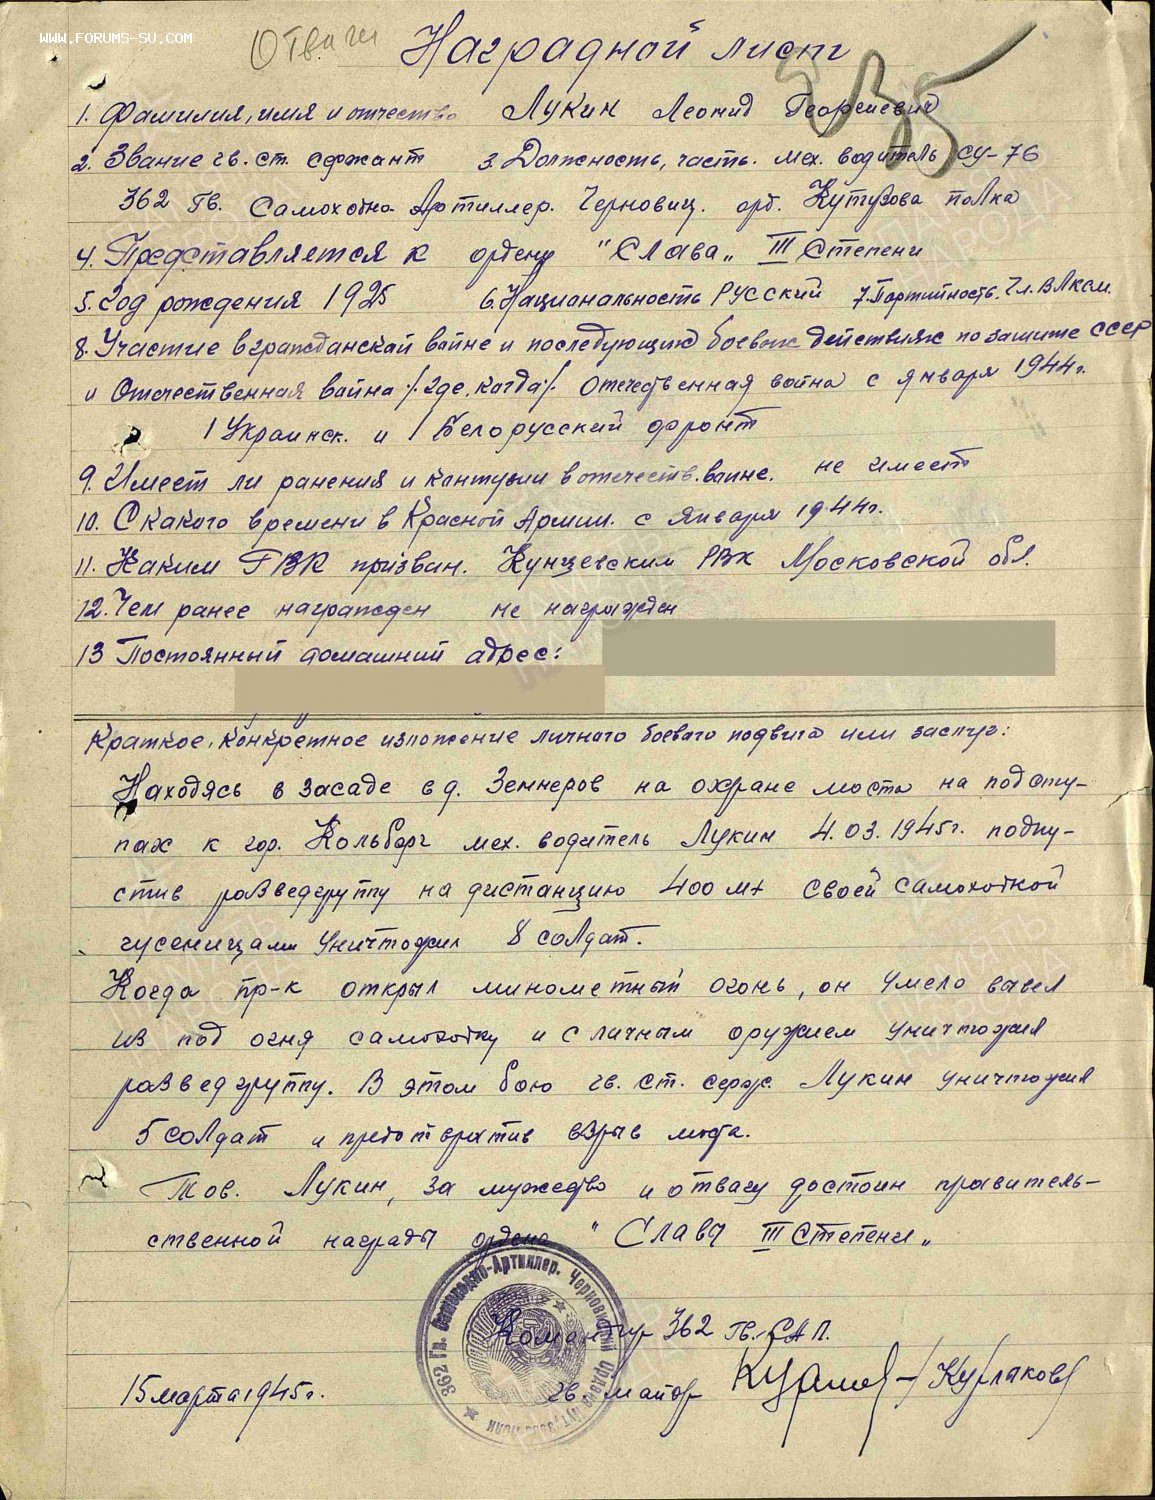 WWW.FORUMS-SU.COM
Отваги
Наградной лист
1. Фамилия, имя и отчество Лукин Леонид Георгиевич
2. Звание гв. ст. сержант 3. Должность, часть. мех. водитель СУ-76
362 Гв. Самоходно Артиллер. Черновиц. орд. Кутузова полка
4. Представляется к ордену "Слава" III Степени
5. Год рождения 1925 6. Национальность Русский 7. Партийность. Чл. ВЛКСМ.
8. Участие в гражданской войне и последующих боевых действиях по защите СССР
и Отечественная война /. где, когда/. Отечественная война с января 1944г.
1 Украинск. и 1 Белорусский фронт
9. Имеет ли ранения и контузии в отечеств. войне. не имеет
10. С какого времени в Красной Армии. с января 1944г.
11. Каким РВК призван. Кунцевским РВК Московской обл.
12. Чем ранее награжден не награжден
13 Постоянный домашний адрес:
Краткое, конкретное изложение личного боевого подвига или заслуг:
Находясь в засаде в д. Земнеров на охране моста на подсту-
пах к гор. Кольберг мех. водитель Лукин 4.03.1945г. подпу-
стив разведгруппу на дистанцию 400 мт своей самоходкой
гусеницами уничтожил 8 солдат.
Когда пр-к открыл минометный огонь, он умело вывел
из под огня самоходку и с личным оружием уничтожил
разведгруппу. В этом бою гв. ст. серж. Лукин уничтожил
5 солдат и предотвратив взрыв моста.
Тов. Лукин, за мужество и отвагу достоин правитель-
ственной награды ордена "Славы III Степени"
362 Гв. Самоходно-Артиллер. Черновицкий Ордена Кутузова полк
Командир 362 Гв. САП.
15 марта 1945г. гв. майор Курлаков